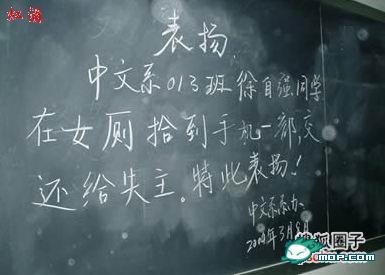 表扬
中文系013班徐自强同学
在女厕拾到手机一部,交
还给失主。特此表扬!
中文系系办
月8日
搜狐圈子
MOP.com